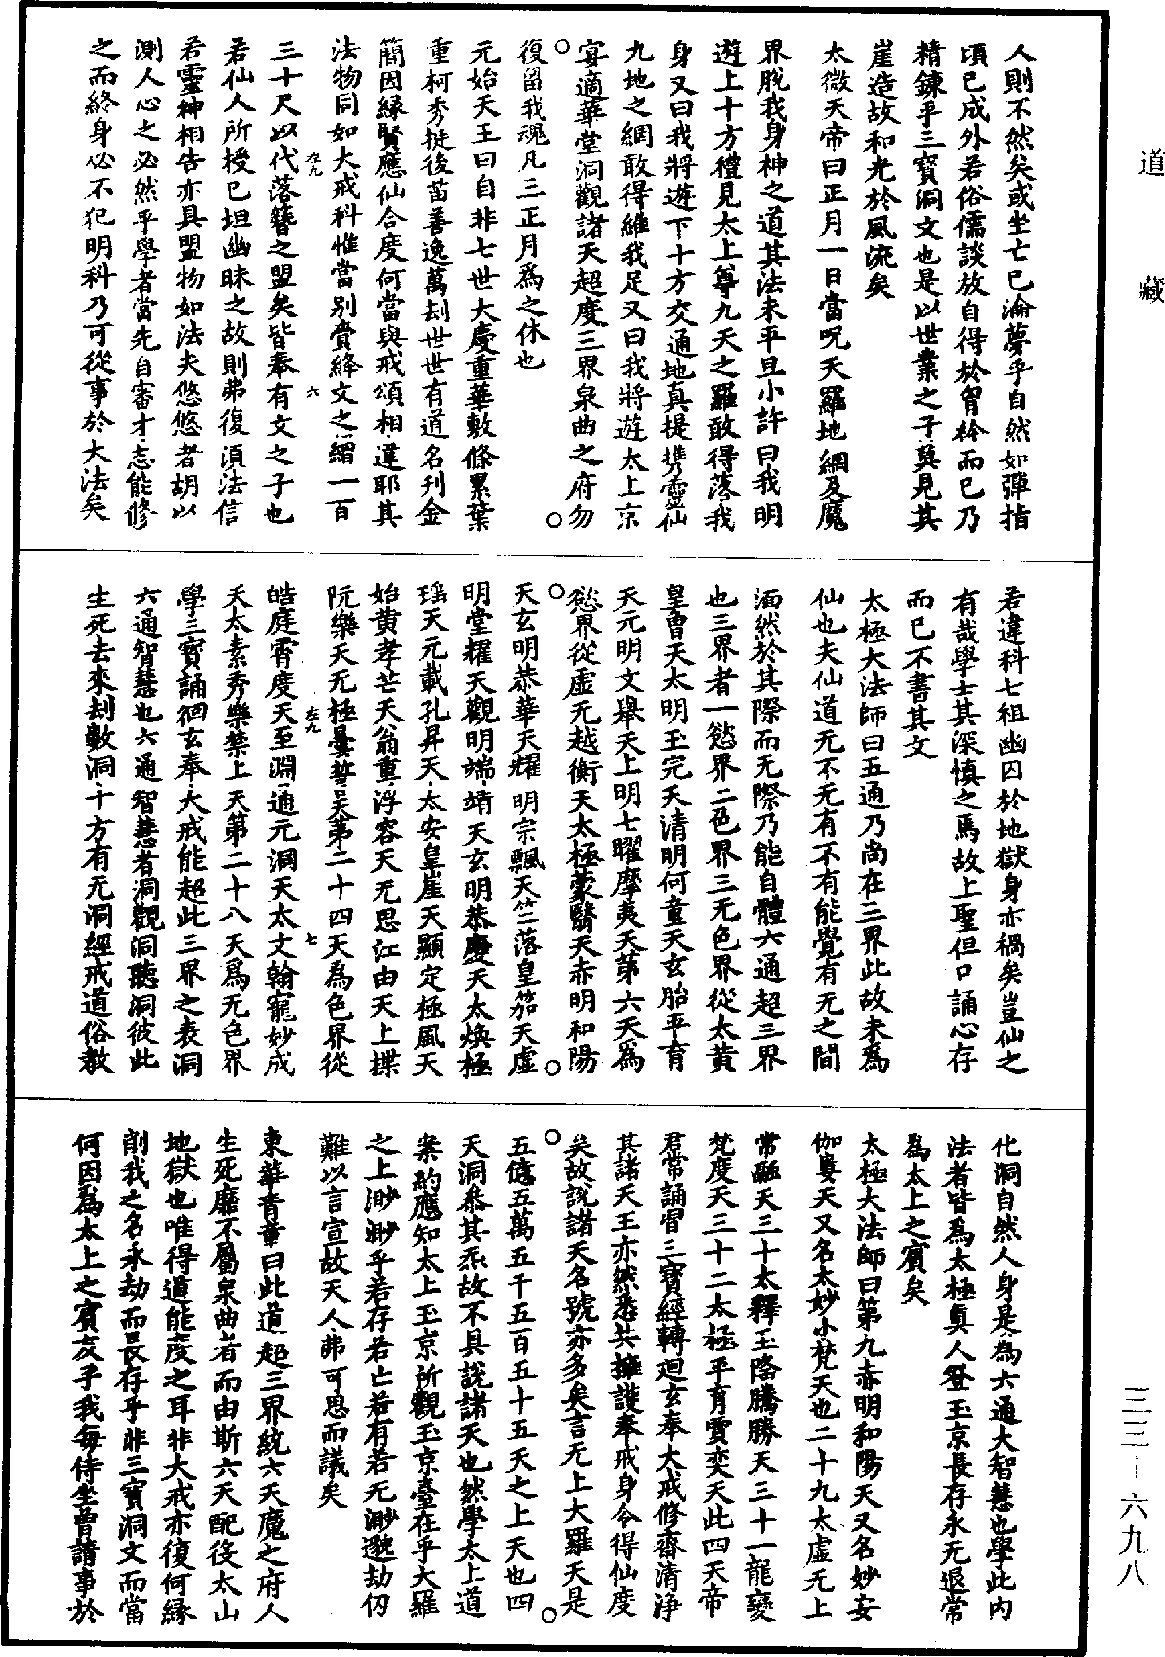 道藏
人則不然矣或坐亡已淪夢乎自然如彈指
頃已成外若俗儒談放自得於胷衿而已乃
精鍊乎三寶洞文也是以世業之子莫見其
崖造故和光於風流矣
太微天帝曰正月一日當呪天羅地網及魔
界脫我身神之道其法未平旦小許曰我明
遊上十方禮見太上尊九天之羅敢得落我
身又曰我將遊下十方交通地真提携靈仙
九地之網敢得維我足又曰我將遊太上京
宴適華堂洞觀諸天超度三界泉曲之府勿
復留我魂凡三正月為之休也
元始天王曰自非七世大慶重華敷條累葉
重柯秀挺後苗善逸萬刦世世有道名刋金
簡因緣賢應仙合度何當與戒頌相違耶其
法物同如大戒科惟當别賫絳文之繒一百
左九
三十尺以代落簪之盟矣皆奉有文之子也
六
若仙人所授已坦幽昧之故則弗復湏法信
若靈神相告亦具盟物如法夫悠悠者胡以
測人心之必然乎學者當先自審才志能修
之而終身必不犯明科乃可從事於大法矣
君違科七祖幽囚於地獄身亦禍矣豈仙之
有哉學士其深慎之焉故上聖但口誦心存
而已不書其文
太極大法師曰五通乃尚在三界此故未為
仙也夫仙道无不无有不有能覺有无之間
湎然於其際而无際乃能自體六通超三界
也三界者一慾界二色界三无色界從太黄
皇曾天太明玉完天清明何童天玄胎平育
天元明文舉天上明七曜摩夷天第六天為
慾界從虛无越衡天太極蒙翳天赤明和陽
天玄明恭華天耀明宗飄天竺落皇笳天虛
明堂耀天觀明端靖天玄明恭慶天太煥極
瑶天元載孔昇天太安皇崖天顯定極風天
始黄孝芒天翁重浮容天无思江由天上揲
阮樂天无極曇誓天第二十四天為色界從
左九
皓庭霄度天至淵通元洞天太文翰寵妙成
七
天太素秀樂禁上天第二十八天為无色界
學三寶誦徊玄奉大戒能超此三界之表洞
六通智慧也六通智慧者洞觀洞聽洞彼此
生死去來刦數洞十方有无洞經戒道俗教
化洞自然人身是為六通大智慧也學此内
法者皆為太極真人登玉京長存永无退常
為太上之賓矣
太極大法師曰第九赤明和陽天又名妙安
伽婁天又名太妙小梵天也二十九太虛无上
常融天三十太釋玉隆騰勝天三十一龍變
梵度天三十二太極平育賈奕天此四天帝
君常誦習三寶經轉廻玄奉大戒修齋清浄
其諸天王亦然悉共擁護奉戒身令得仙度
矣故說諸天名號亦多矣言无上大羅天是
五億五萬五千五百五十五天之上天也四
天洞泰其炁故不具說諸天也然學太上道
案約應知太上玉京所觀玉京臺在乎大羅
之上渺渺乎若存若亡若有若无渺邈劫仞
難以言宣故天人弗可思而議矣
東華青童曰此道超三界統六天魔之府人
生死靡不屬泉曲者而由斯六天配役太山
地獄也唯得道能度之耳非大戒亦復何縁
削我之名永劫而長存乎非三寶洞文而當
何因為太上之賓友乎我每侍坐曾請事於
三三-六九八